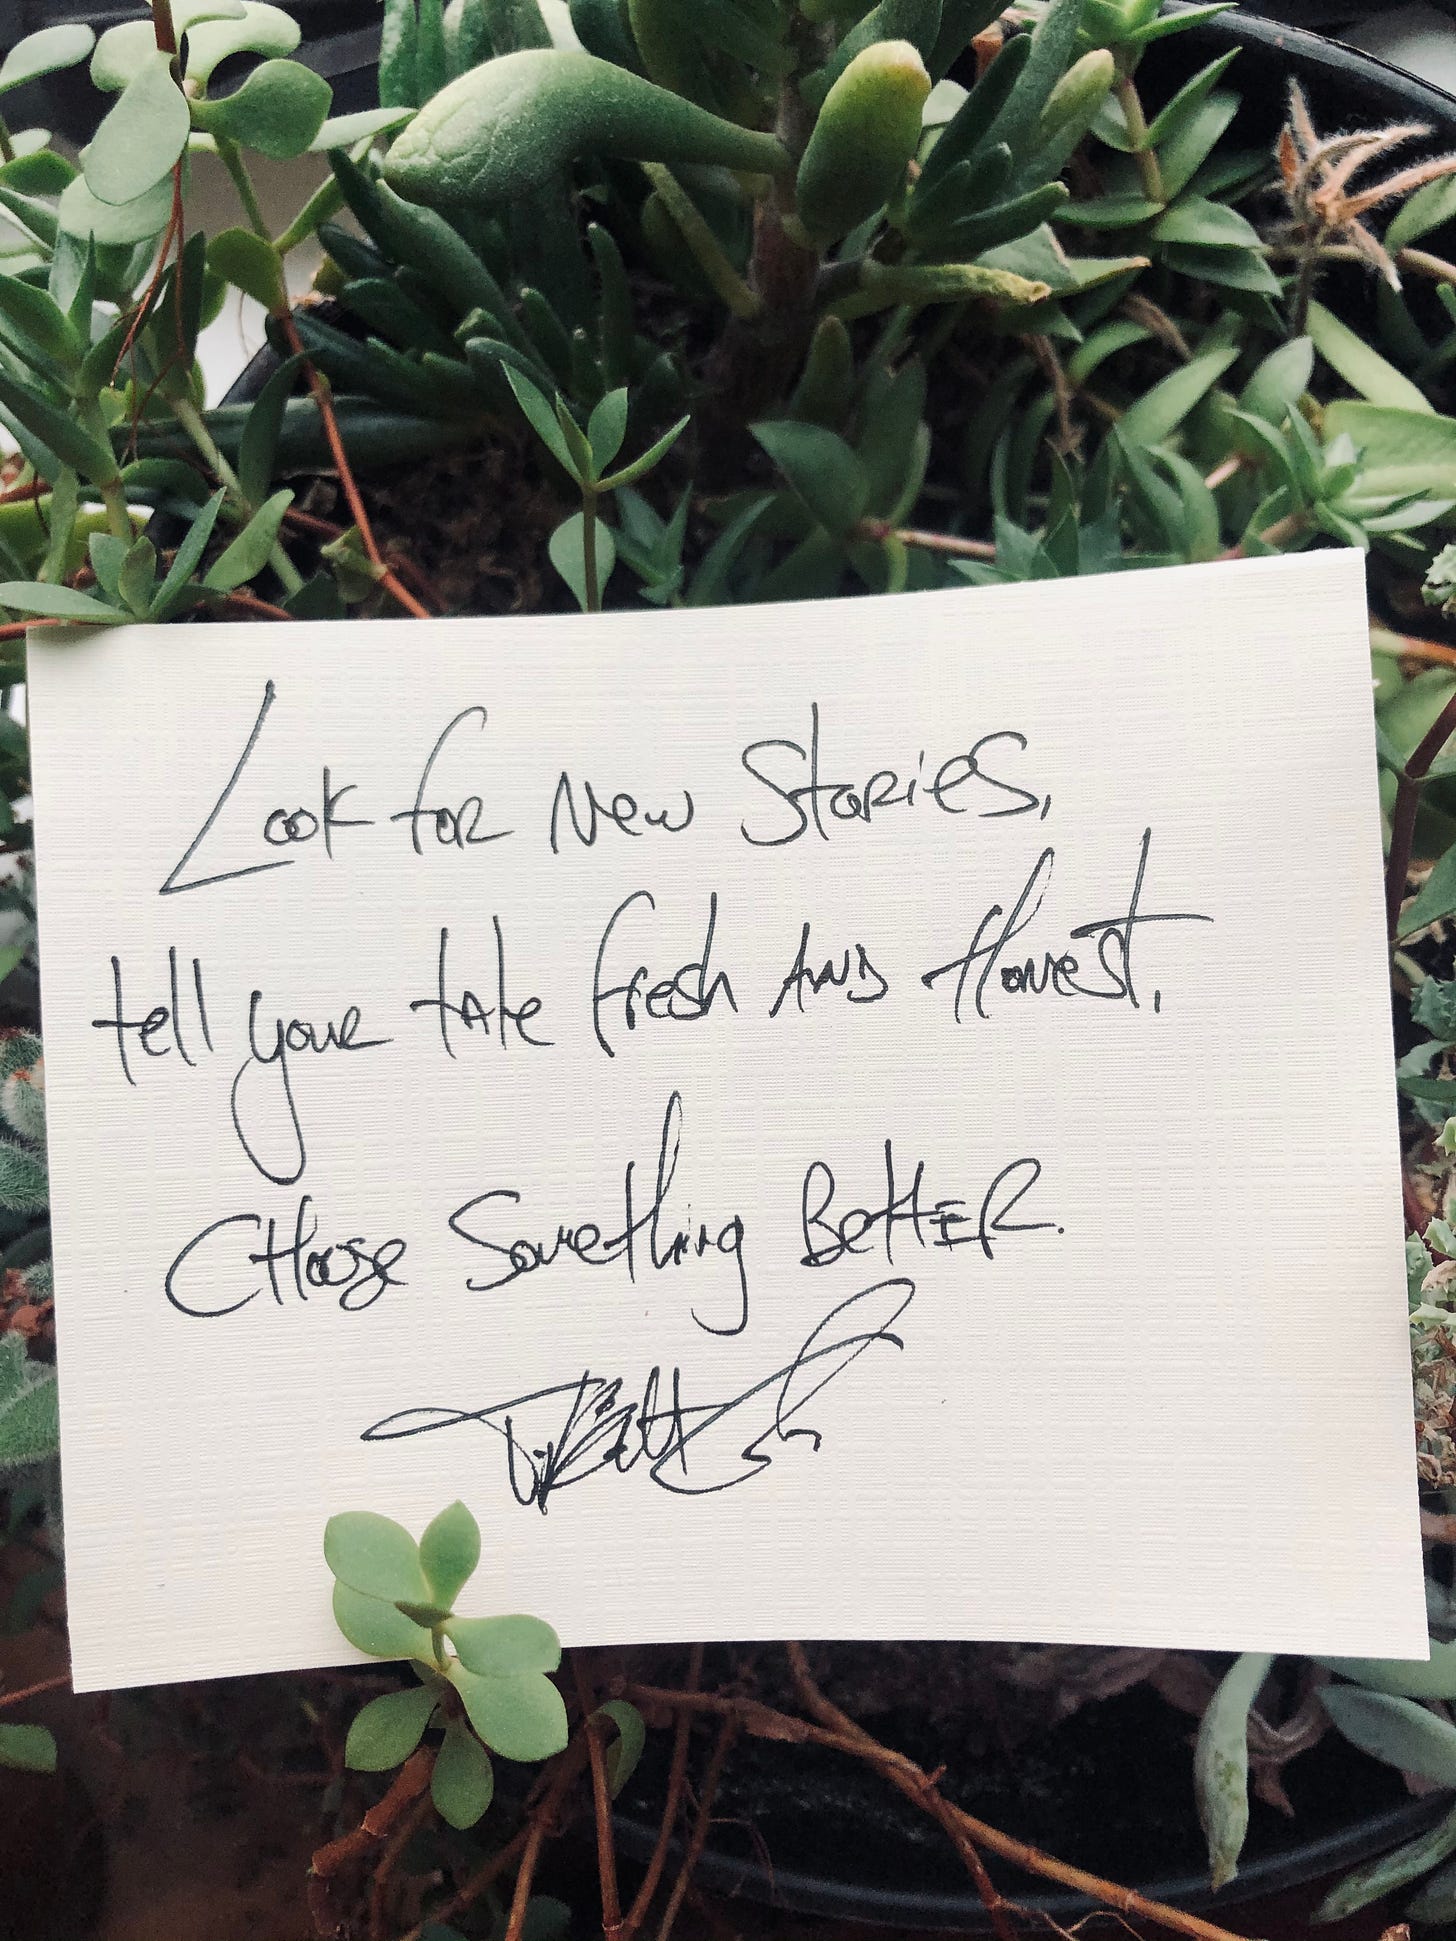 Look for New Stories,
tell your tale fresh and Honest,
Choose Something Better.